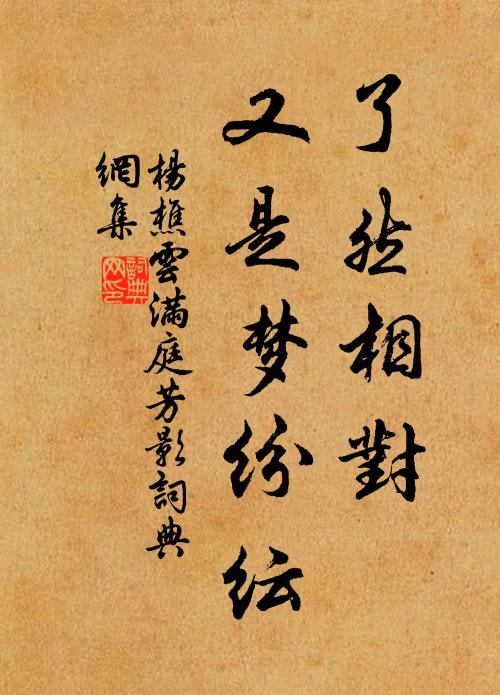 了然相對
又是梦紛紜
楊樵雲滿庭芳影詞典
網集
詞典
网印